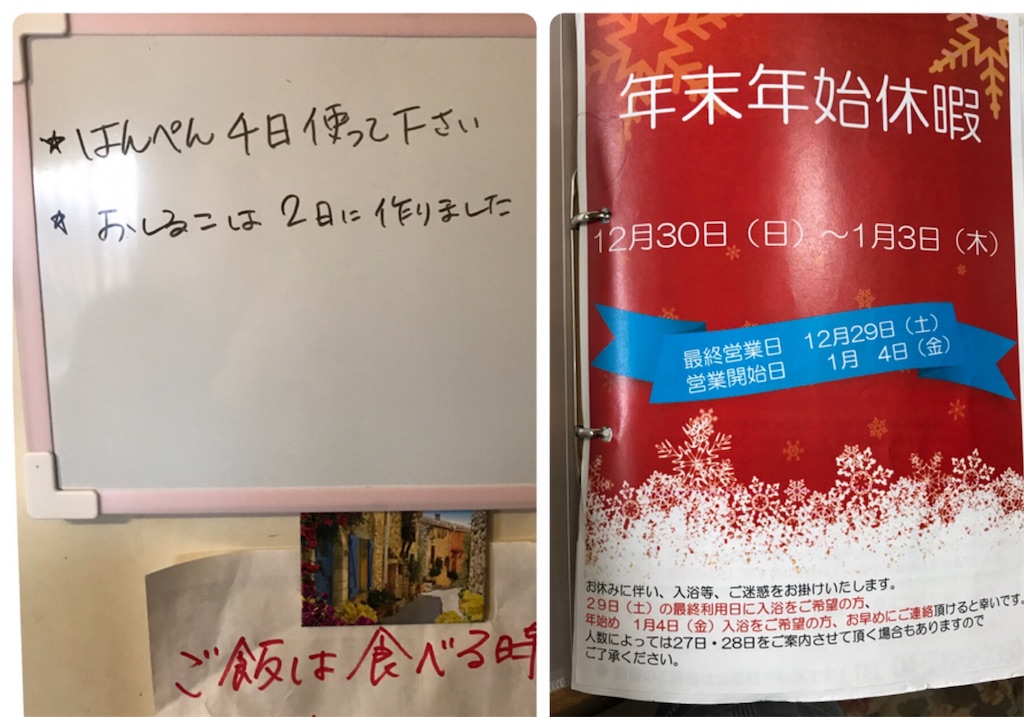 ★はんぺん4日使って下さい
★おしるこは2日に作りました
ご飯は食べる時
年末年始休暇
12月30日（日）～1月3日（木）
最終営業日 12月29日（土）
営業開始日 1月 4日（金）
お休みに伴い、入浴等、ご迷惑をお掛けいたします。
29日（土）の最終利用日に入浴をご希望の方、
年始め 1月4日（金）入浴をご希望の方、お早めにご連絡頂けると幸いです。
人数によっては27日・28日をご案内させて頂く場合もありますので
ご了承ください。